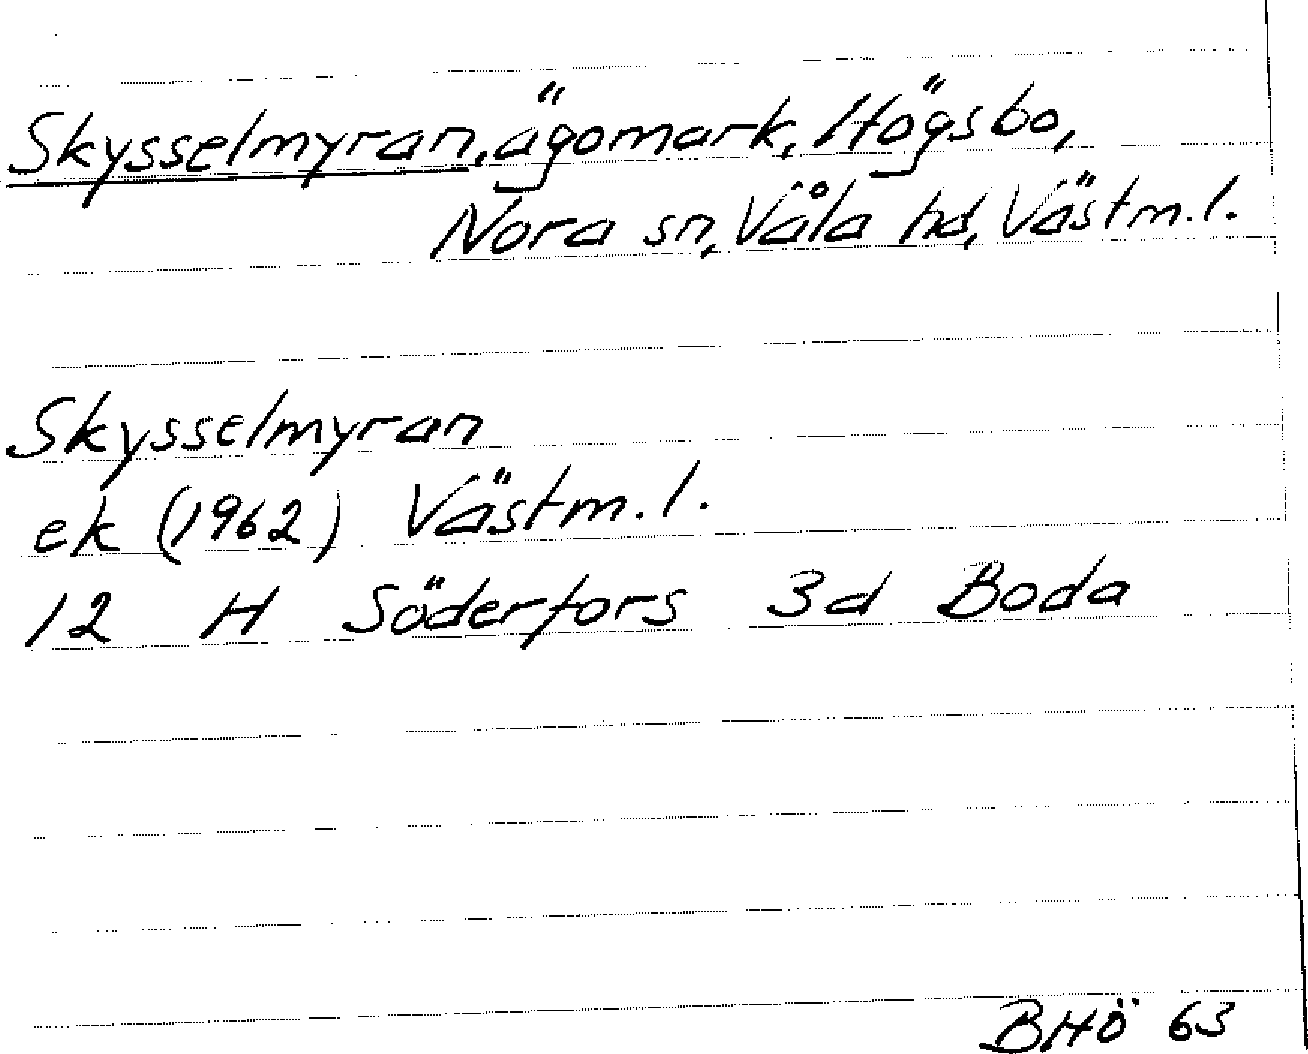 Skysselmyran, ägomark, Högsbo,
Nora sn, Våla hd, Västm. l.
Skysselmyran
ek (1962) Västm. l.
12 H Söderfors 3d Boda
BHÖ 63